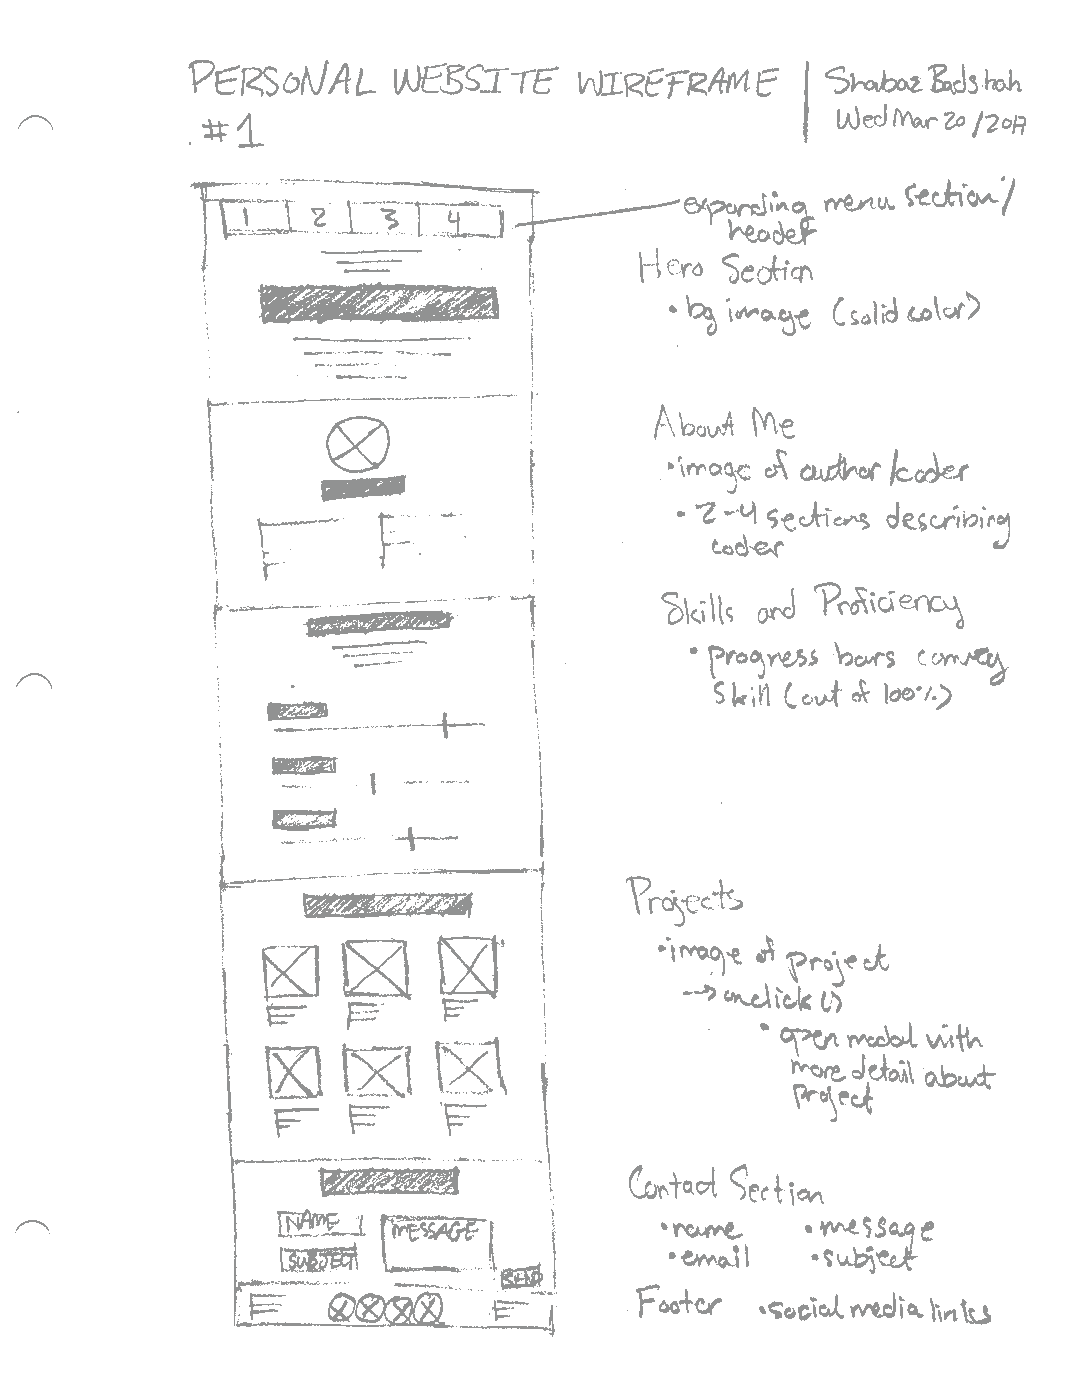 PERSONAL WEBSITE WIREFRAME
#1
Shabaz Badshah
Wed Mar 20/2017
1 2 3 4
expanding menu section/
header
Hero Section
• bg image (solid color)
About Me
• image of author/coder
• 2-4 sections describing
coder
Skills and Proficiency
• progress bars convey
skill (out of 100%)
Projects
• image of project
--> onclick()
• open modal with
more detail about
project
Contact Section
• name • message
• email • subject
NAME
MESSAGE
SUBJECT
SEND
Footer • social media links